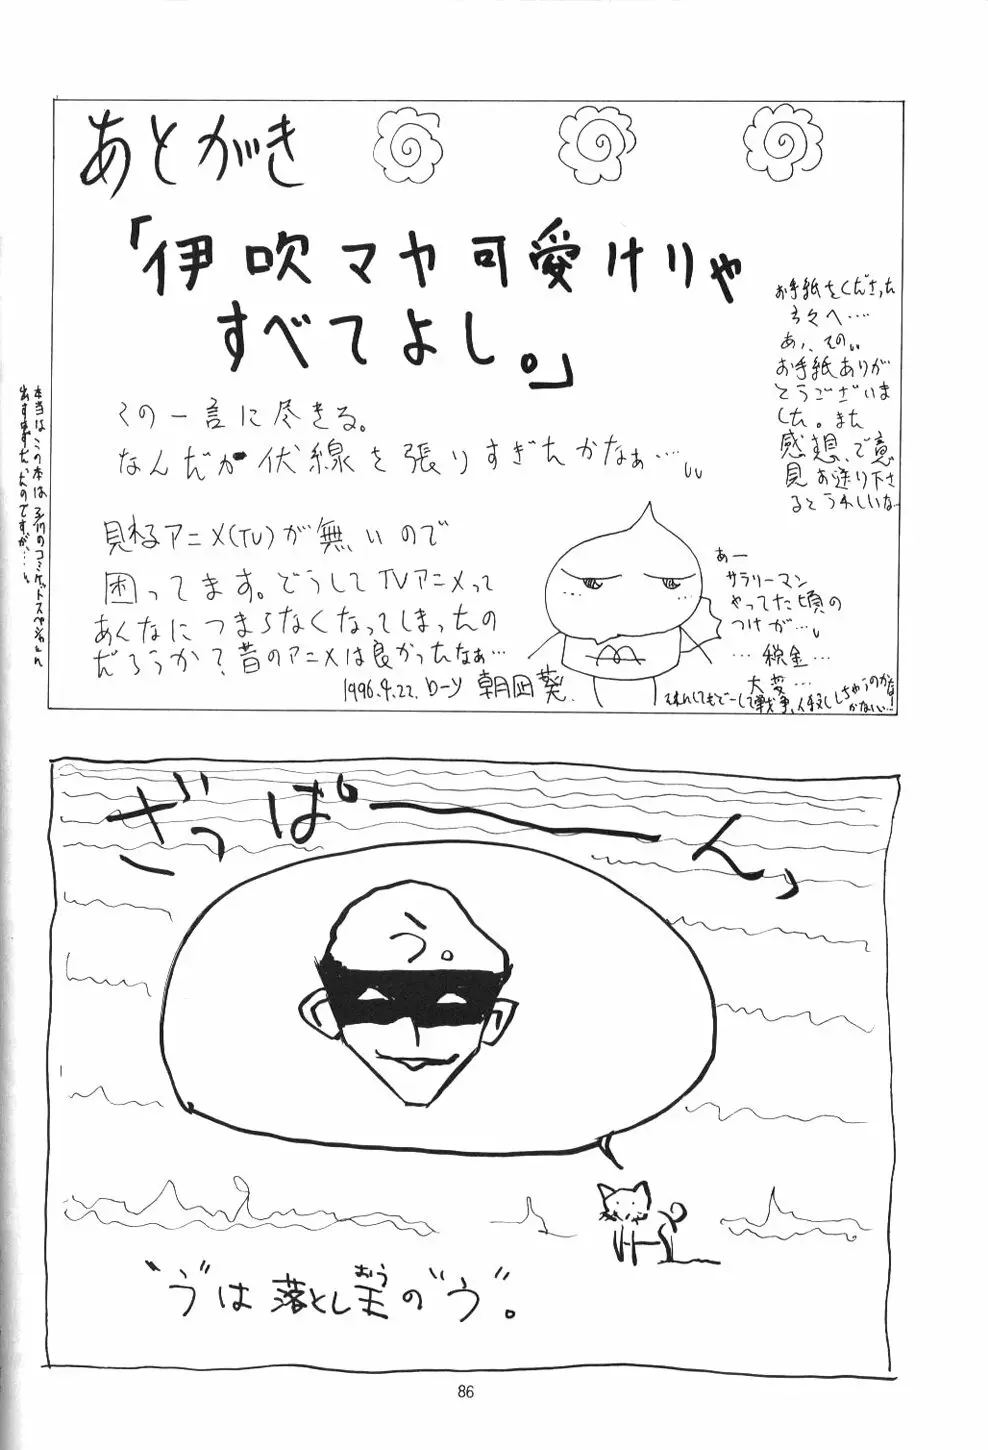 あとがき
「伊吹マヤ可愛けりゃ
すべてよし。」
この一言に尽きる。
なんだか伏線を張りすぎたかなぁ…
お手紙をくださった
方々へ…
あ、その
お手紙ありが
とうございま
した。また
感想、ご意
見お送り下さ
るとうれしいな
本当はこの本は3/17のコミケットスペシャルに
出すはずだったのですが…
見れるアニメ(TV)が無いので
困ってます。どうしてTVアニメって
あんなにつまらなくなってしまったの
だろうか?昔のアニメは良かったなぁ…
1996.4.22. ローソ 朝凪葵.
あー
サラリーマン
やってた頃の
つけが…
…税金…
大変…
それにしてもどーして戦争、
しちゃうのかな!
かない…
ざっぱーーん
う。
"う"は落とし王の"う"。
おう
86